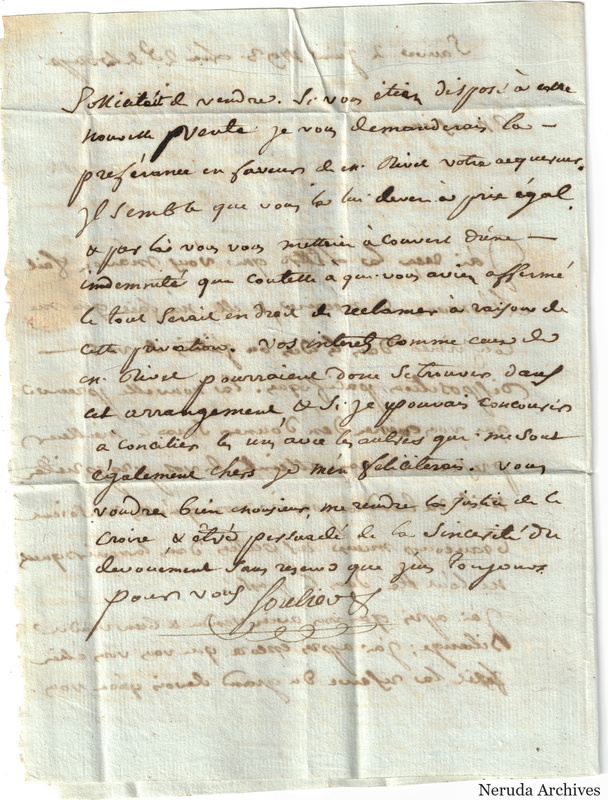 Sollicitait de vendre. Si vous étiez disposé à cette
nouvelle vente je vous demanderais la
préférance en faveur de m. Rivet votre acquereur.
Il semble que vous la lui devez à prix égal
& par là vous vous mettriez à couvert d'une
indemnité que coutelle a qui vous aviez affermé
le tout serait en droit de reclamer à raison de
cette privation. Vos interets comme ceux de
m. Rivet pourraient donc se trouver dans
cet arrangement & si je pouvais concourir
a concilier les uns avec les autres qui me sont
égalément chers je m'en féliciterais. Vous
voudrez bien monsieur, me rendre la justice de le
croire & être persuadé de la sincérité du
devouement sans reserve que j'ai toujours
pour vous
Neruda Archives